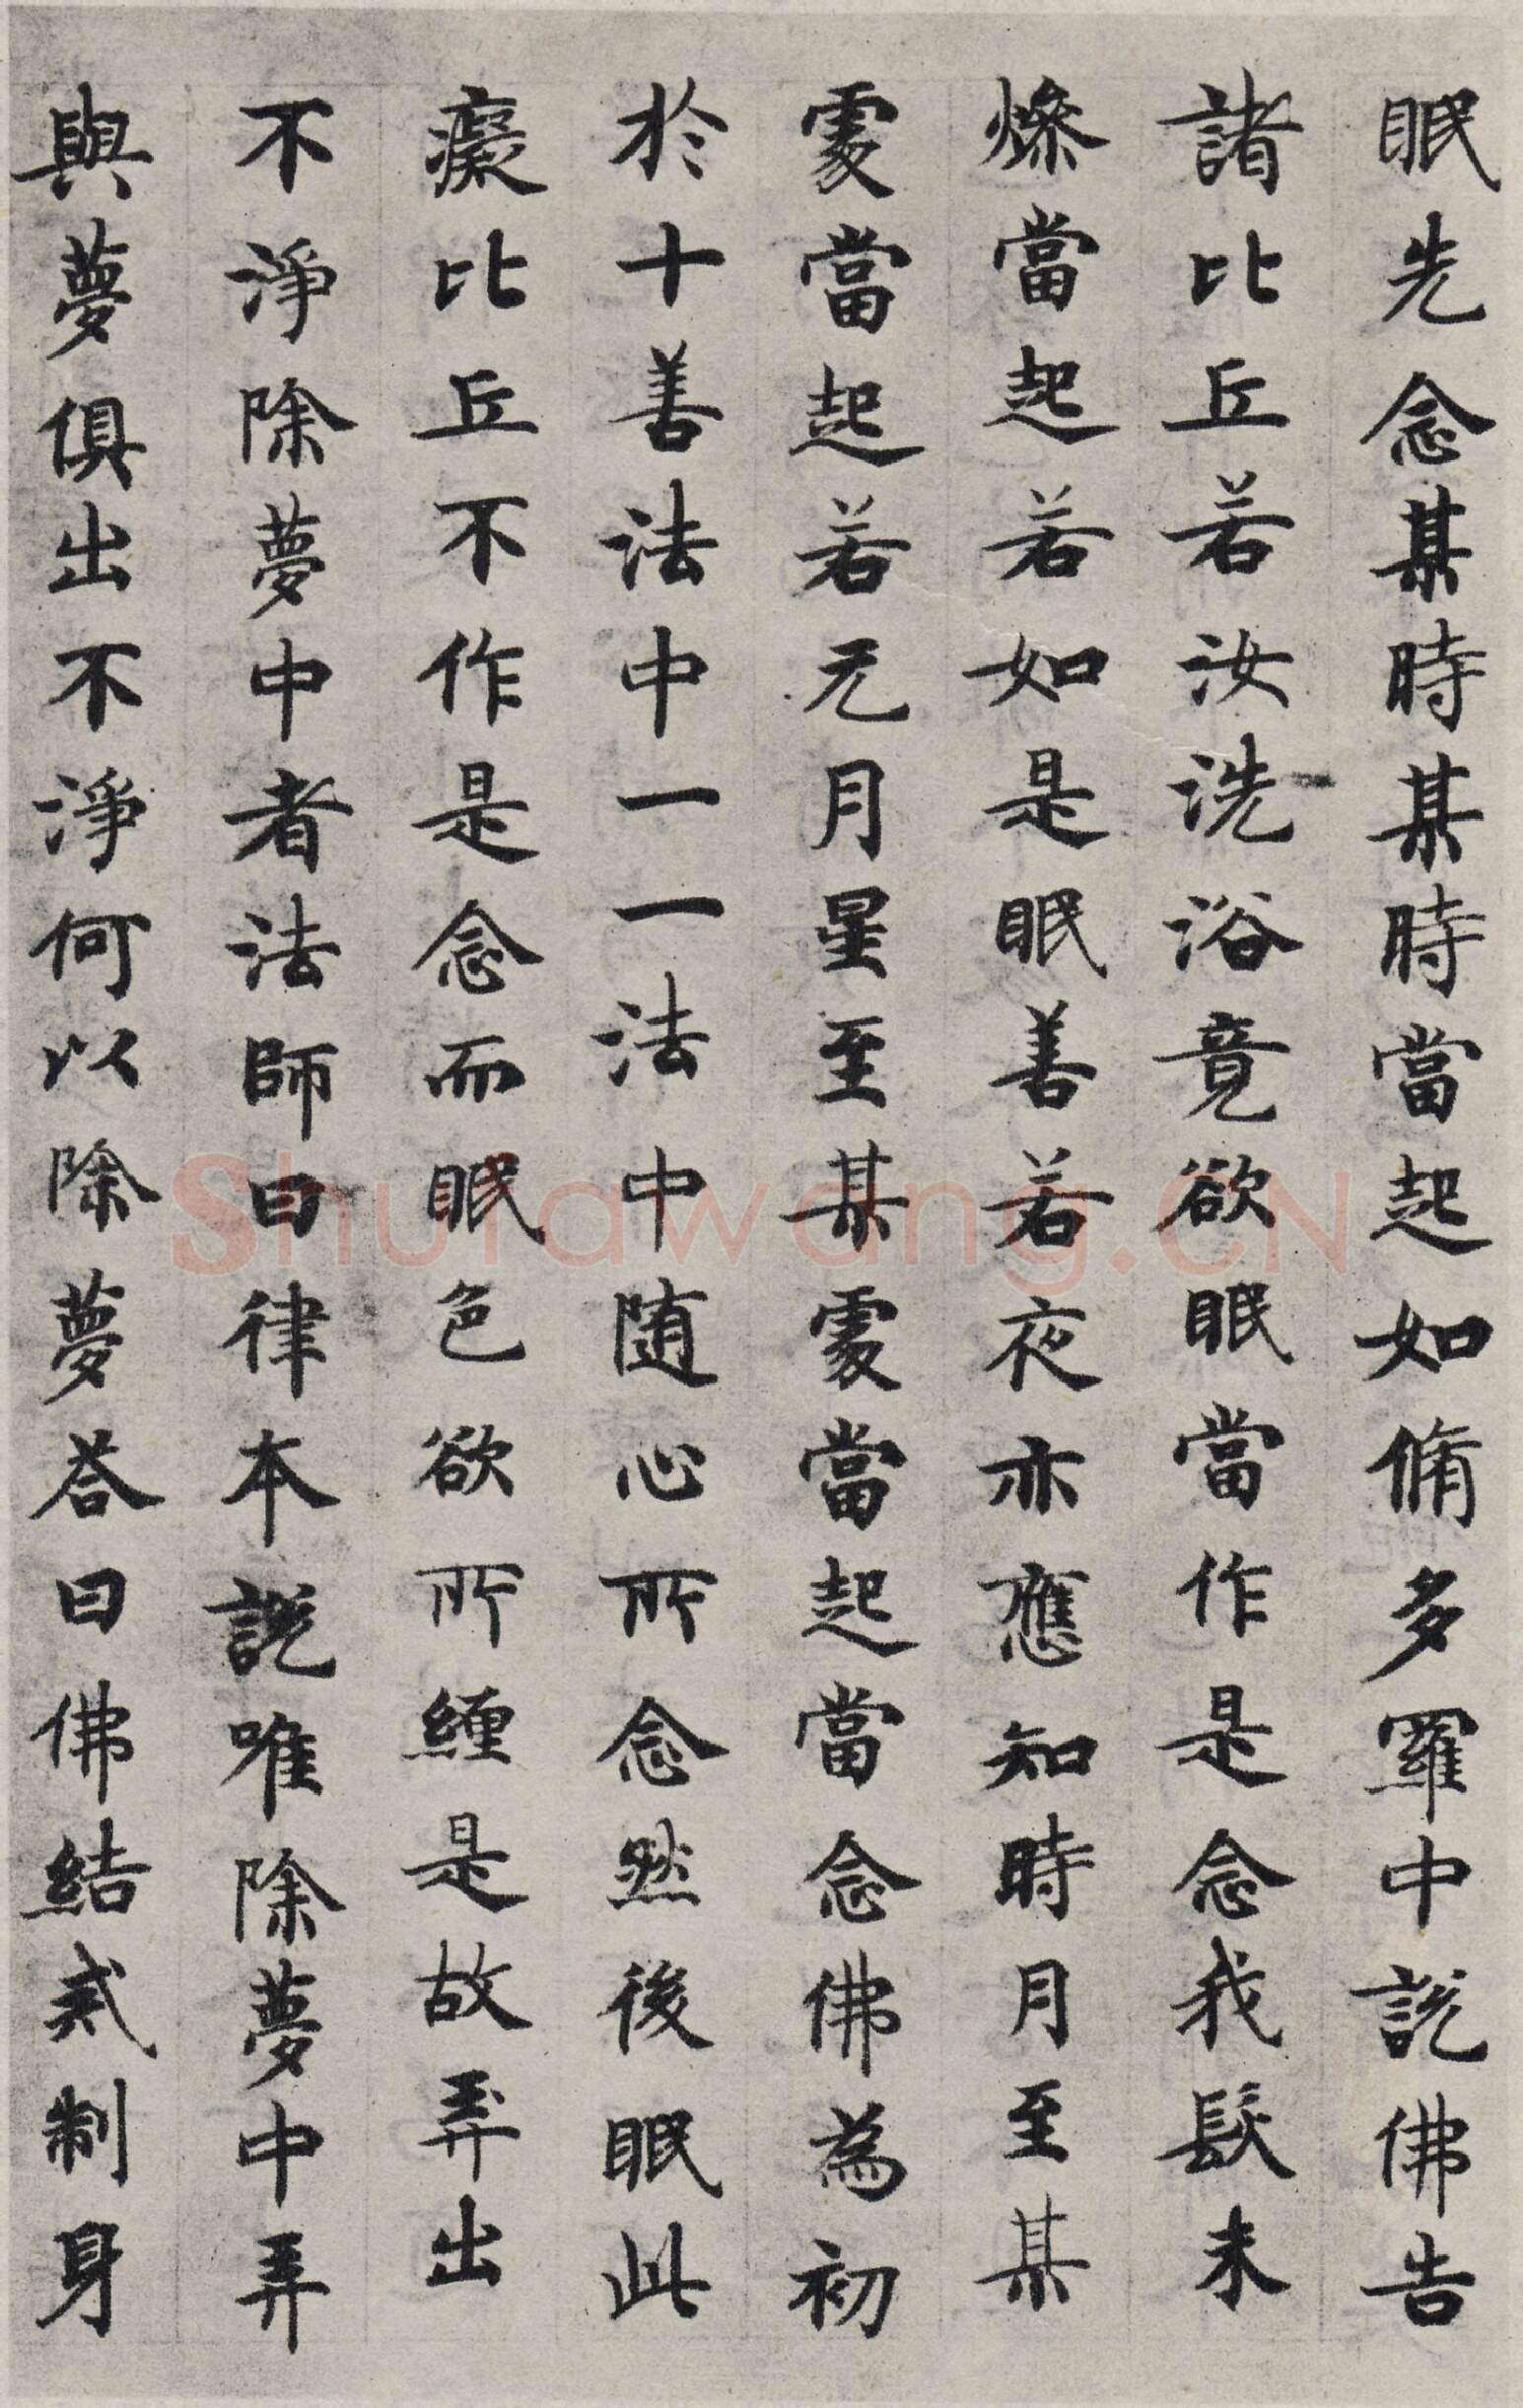 眠先念某時某時當起如脩多羅中説佛告
諸比丘若汝洗浴竟欲眠當作是念我髮未
燥當起若如是眠善若夜亦應知時月至某
處當起若无月星至某處當起當念佛為初
於十善法中一一法中随心所念然後眠此
癡比丘不作是念而眠色欲所纏是故弄出
不淨除夢中者法師曰律本説唯除夢中弄
與夢俱出不淨何以除夢荅曰佛結戒制身
Shufawang.CN